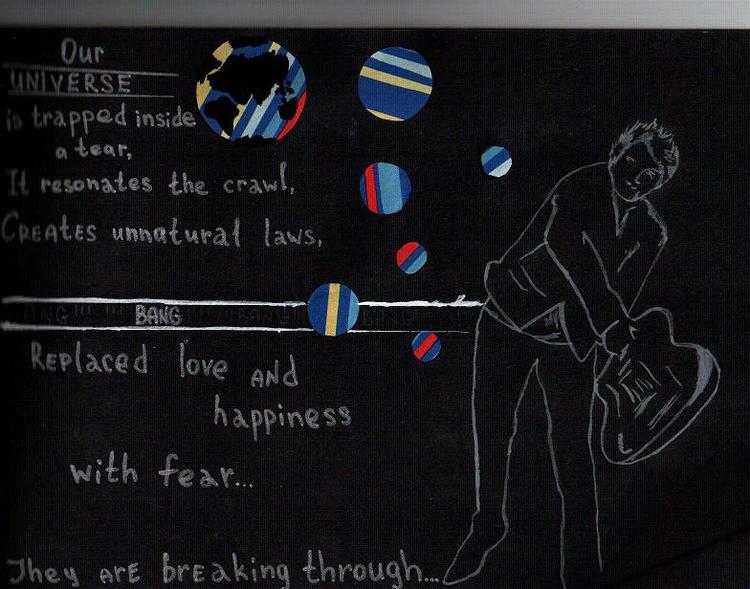 Our
UNIVERSE
is trapped inside
a tear,
It resonates the crawl,
CREATES unnatural laws,
BANG
REplaced love AND
happiness
with fear...
They ARE bREaking through...